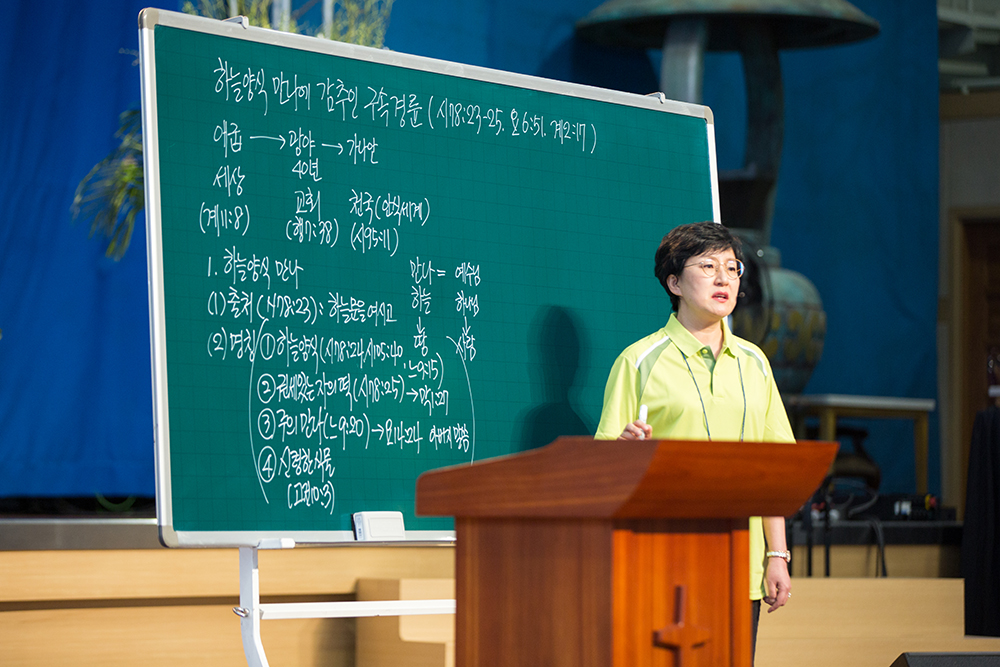 하늘양식 만나에 감추인 구속경륜 (시78:23-25, 요6:51, 계2:17)
애굽 → 광야 → 가나안
40년
세상 교회 천국(안식세계)
(계11:8) (행7:38) (시95:11)
1. 하늘양식 만나 만나 = 예수님
(1) 출처 (시78:23) : 하늘문을 여시고 하늘 하나님
(2) 명칭 ① 하늘양식 (시78:24, 시105:40, 느9:15) 땅 사람
② 권세있는 자의 떡 (시78:25) → 막1:27
③ 주의 만나 (느9:20) → 요14:24 아버지 말씀
④ 신령한 식물
(고전10:3)